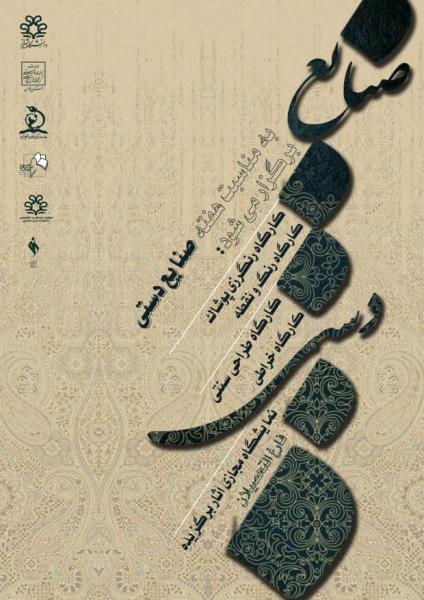 صنایع
دستی
به مناسبت هفته صنایع دستی
برگزار می شود:
کارگاه رنگرزی پوشاک
کارگاه رنگ و نقطه
کارگاه طراحی سنتی
کارگاه خراطی
نمایشگاه مجازی آثار برگزیده
فارغ التحصیلان
دانشگاه شیراز